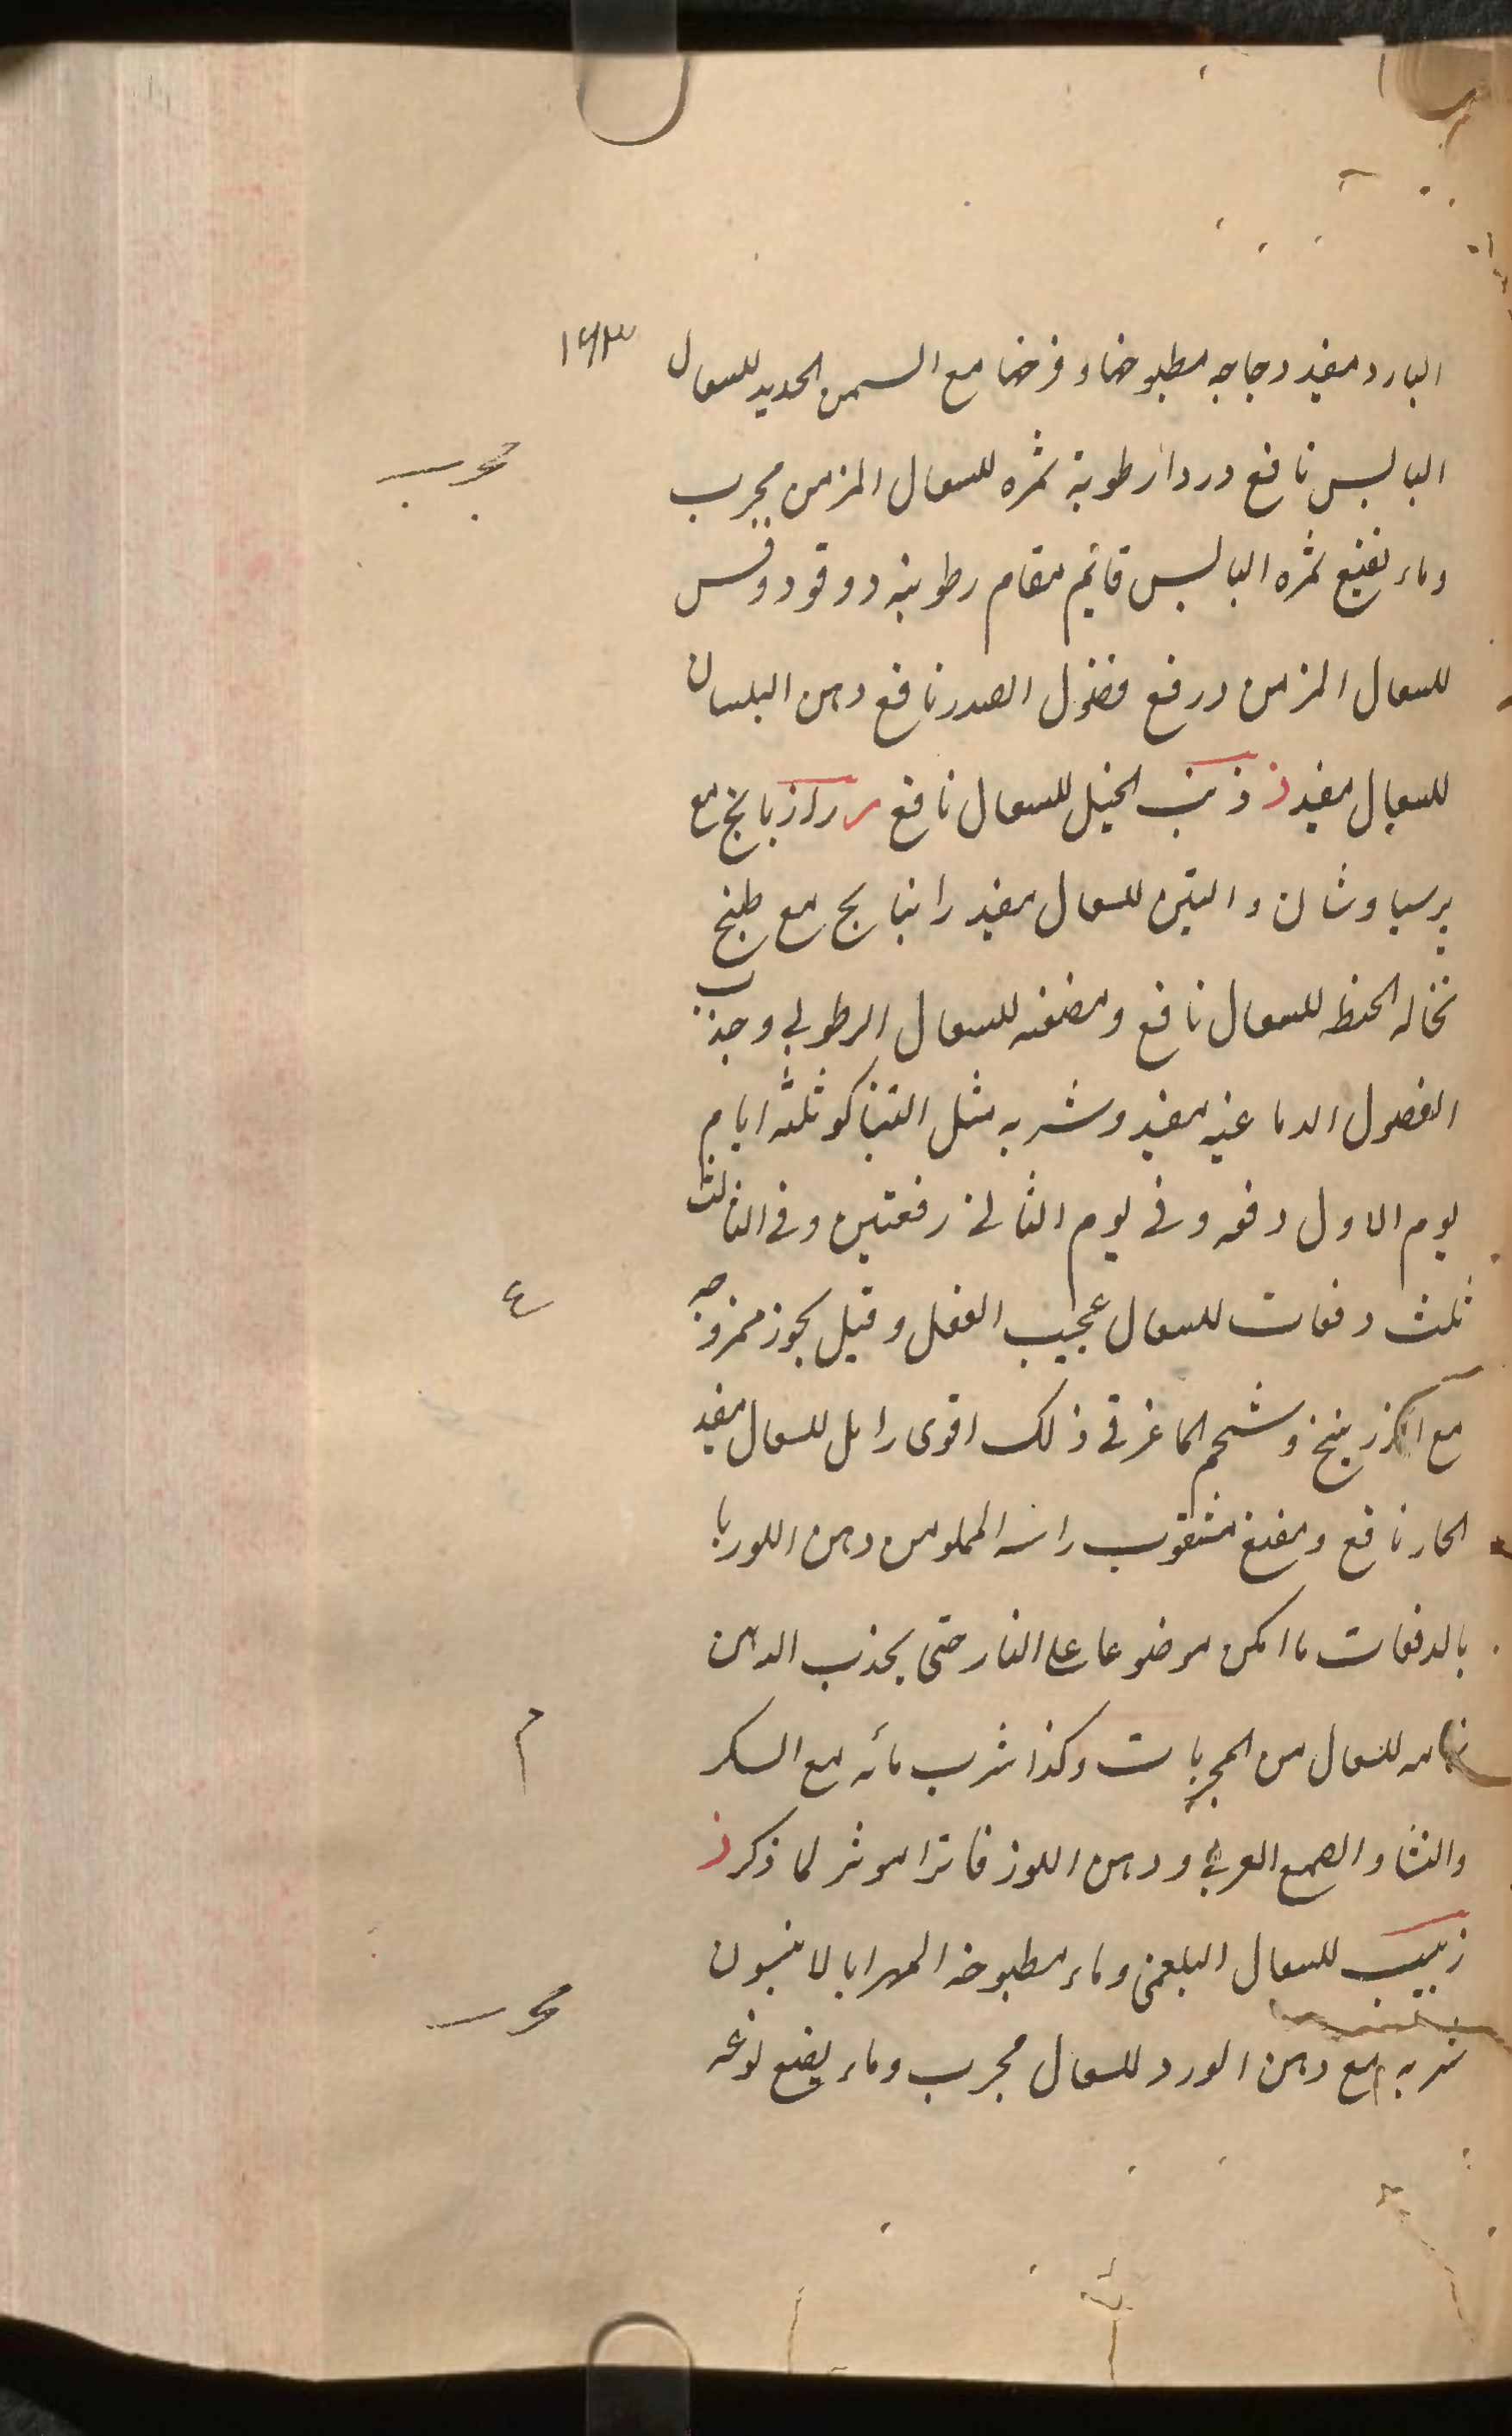 ١٤٣
البارد مفيد دجاجه مطبوخها و فرخها مع السمن الجديد للسعال
اليابس نافع دردار رطوبة ثمره للسعال المزمن مجرب
مجرب
وماء نقيع ثمره اليابس قايم مقام رطوبته دوقو دوقس
للسعال المزمن ورفع فضول الصدر نافع دهن البلسان
للسعال مفيد ذ ذنب الخيل للسعال نافع ر رازيانج مع
پرسياوشان والتين للسعال مفيد راتيانج مع طبخ
نخاله الحنطه للسعال نافع ومضغه للسعال الرطوبي وجذب
الفضول الدماغيه مفيد وشربه مثل التنباكو ثلثه ايام
يوم الاول دفعه وفي يوم الثاني دفعتين وفي الثالث
ثلث دفعات للسعال عجيب الفعل وقيل بجوز ممزوجه
ع
مع الزرنيخ وشحم الماعز في ذلك اقوى للسعال مفيد
الحار نافع مثقوب راسه المملو من دهن اللوز
بالدفعات ما امكن موضوعا على النار حتى يجذب الدهن
للسعال من المجربات وكذا شرب مائه مع السكر
م
والنشا والصمغ العربي ودهن اللوز فاترا موثر لما ذكر ز
زبيب للسعال البلغمي وماء مطبوخه المهرا بالانيسون
شربه مع دهن الورد للسعال مجرب وماء نقيع نوعه
مجرب